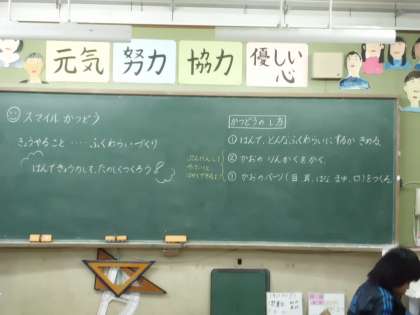 元気
努力
協力
優しい
心
スマイルかつどう
きょうやること……ふくわらいづくり
はんできょうりょくして、たのしくつくろう
かつどうのし方
① はんで、どんなふくわらいにするかきめる。
② かおのりんかくをかく。
③ かおのパーツ(目、耳、はな、まゆ、口)をつくる。